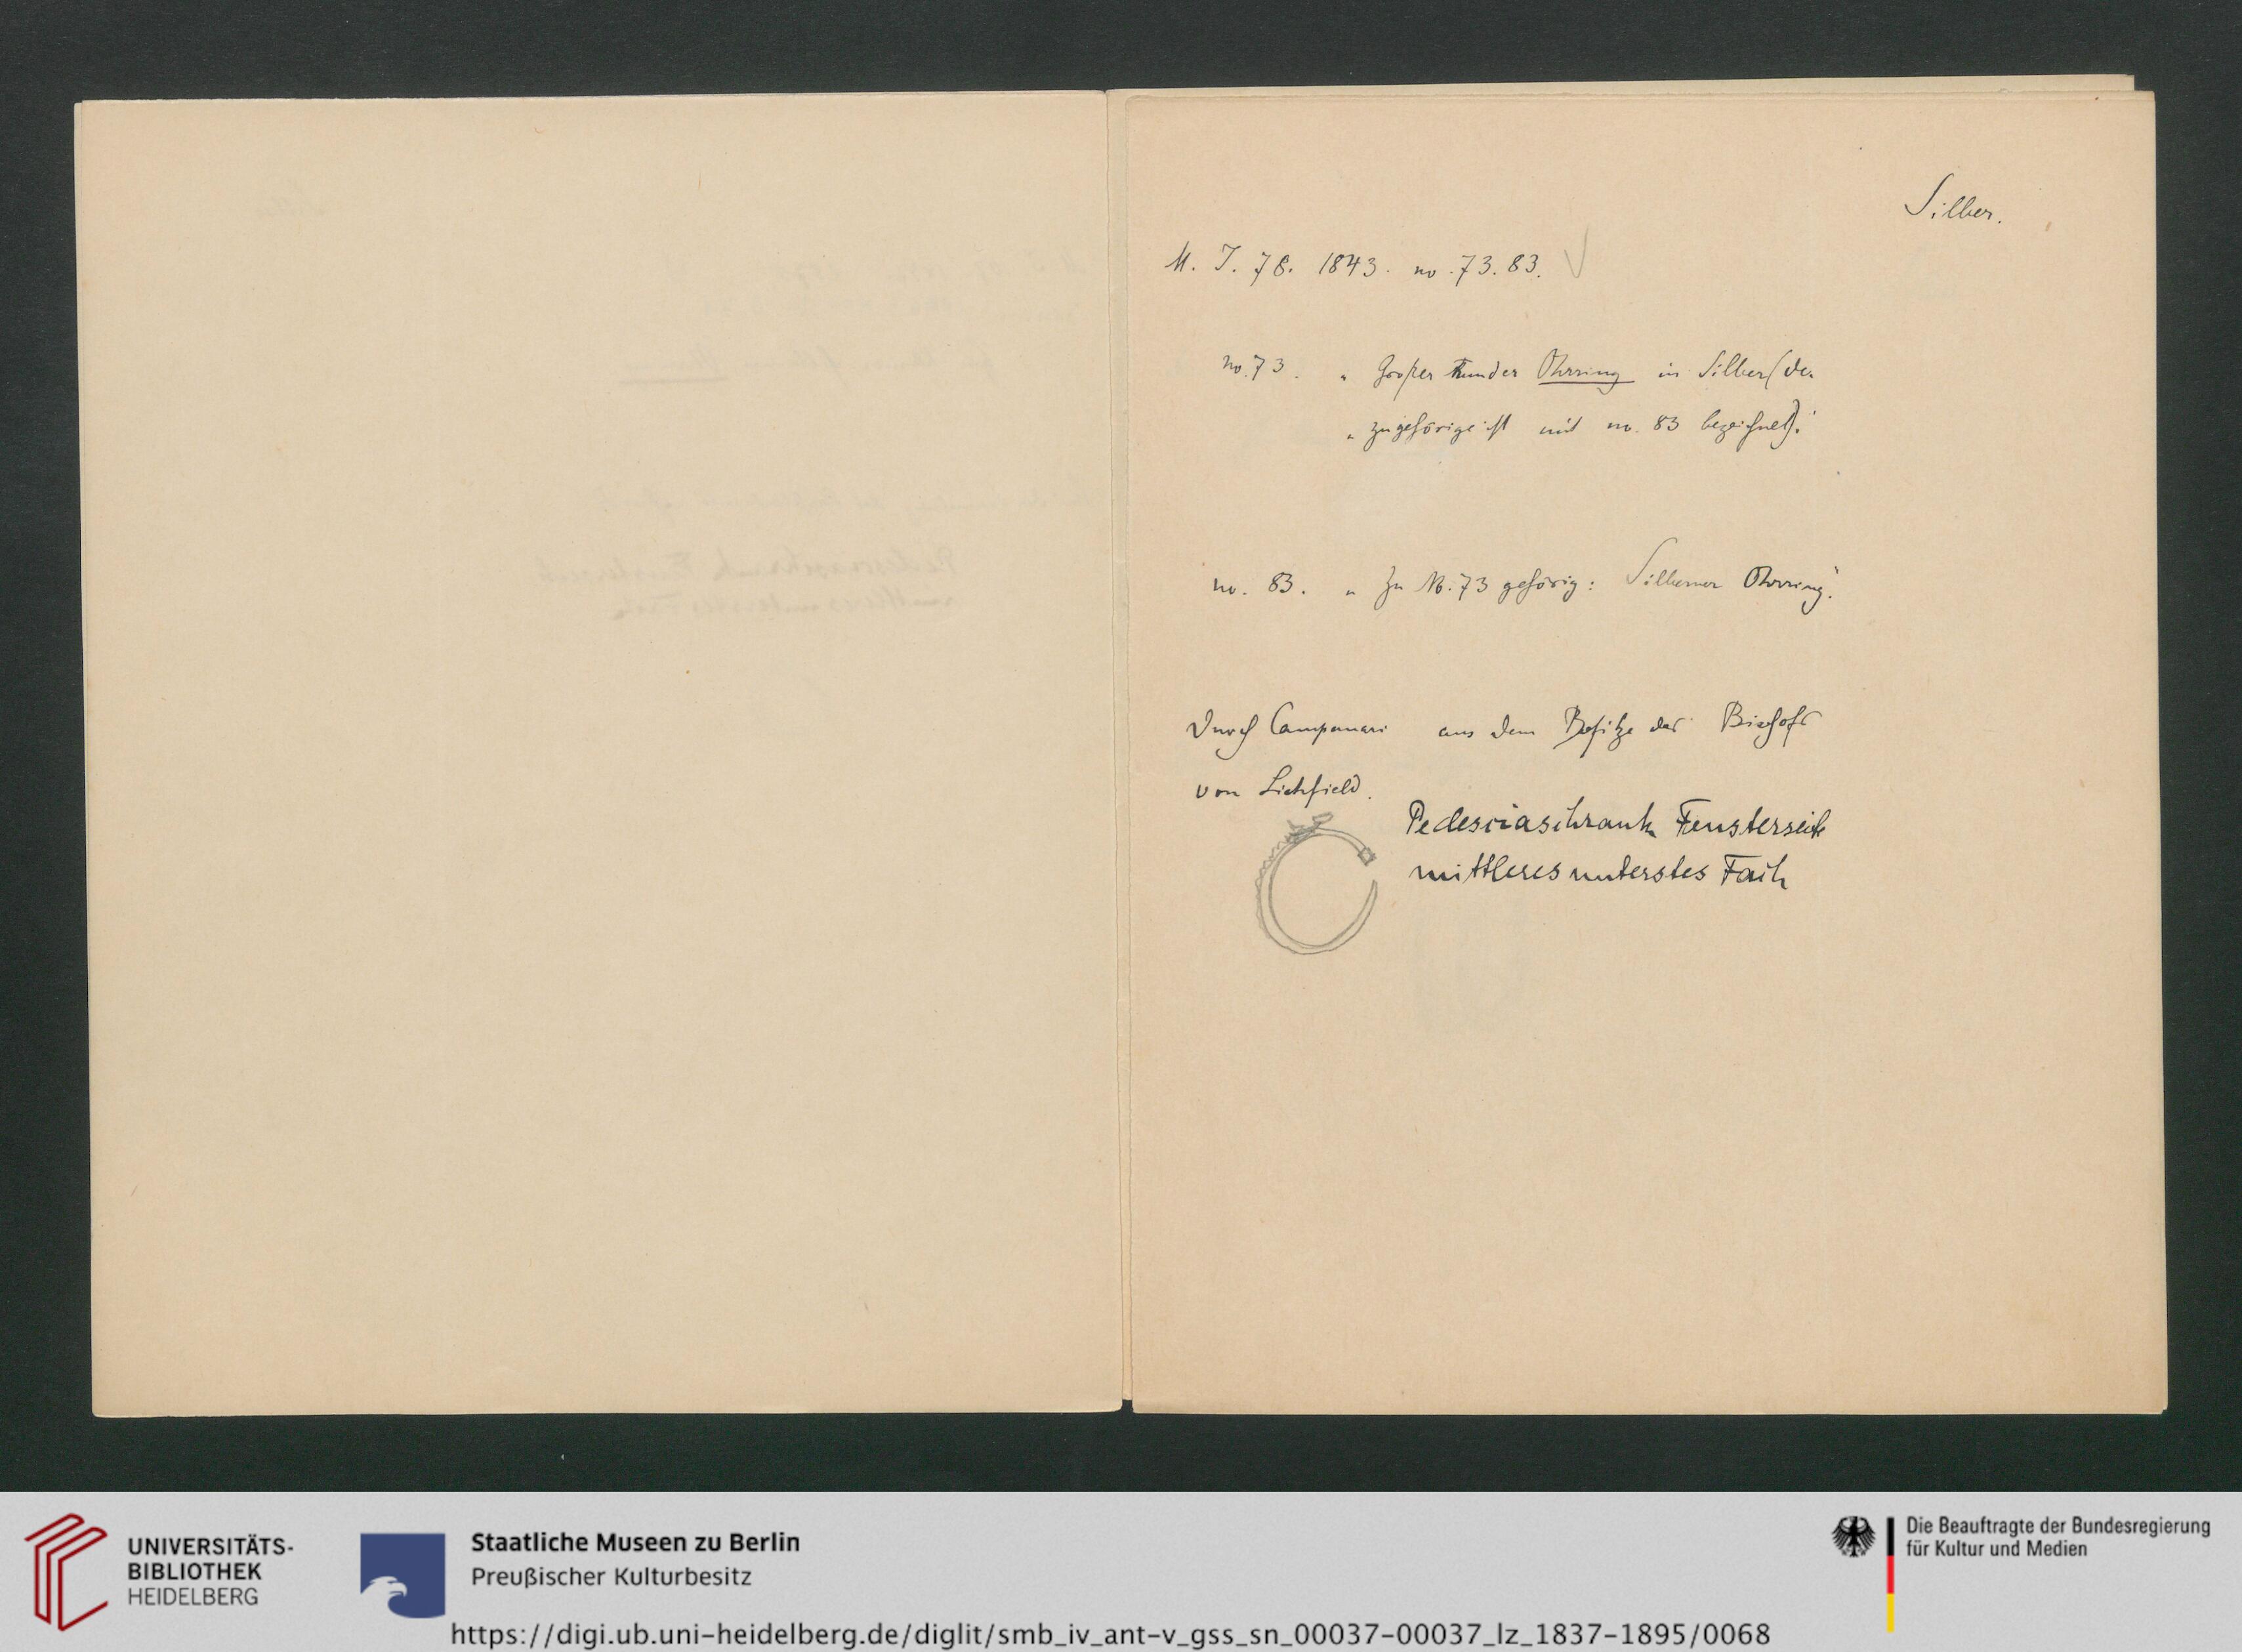 Silber.
M. I. 78. 1843. no. 73. 83.
no. 73. „ Großer runder Ohrring in Silber (der
„ zugehörige ist mit no. 83 bezeichnet).“
no. 83. „ Zu No. 73 gehörig: Silberner Ohrring.“
Durch Campanari aus dem Besitze des Bischofs
von Lichfield.
Pedesciaschrank Fensterseite
mittleres unterstes Fach
UNIVERSITÄTS-
BIBLIOTHEK
HEIDELBERG
Staatliche Museen zu Berlin
Preußischer Kulturbesitz
https://digi.ub.uni-heidelberg.de/diglit/smb_iv_ant-v_gss_sn_00037-00037_lz_1837-1895/0068
Die Beauftragte der Bundesregierung
für Kultur und Medien